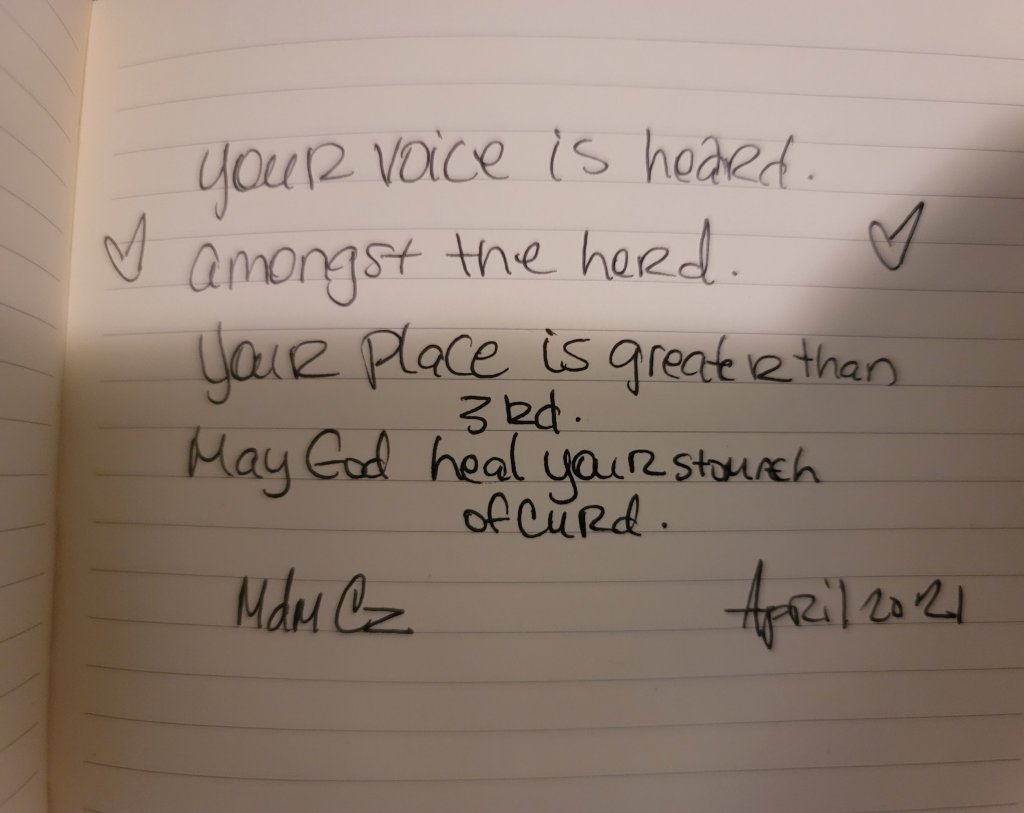 your voice is heard.
amongst the herd.
Your place is greater than
3rd.
May God heal your stomach
of curd.
MdM Cz April 2021